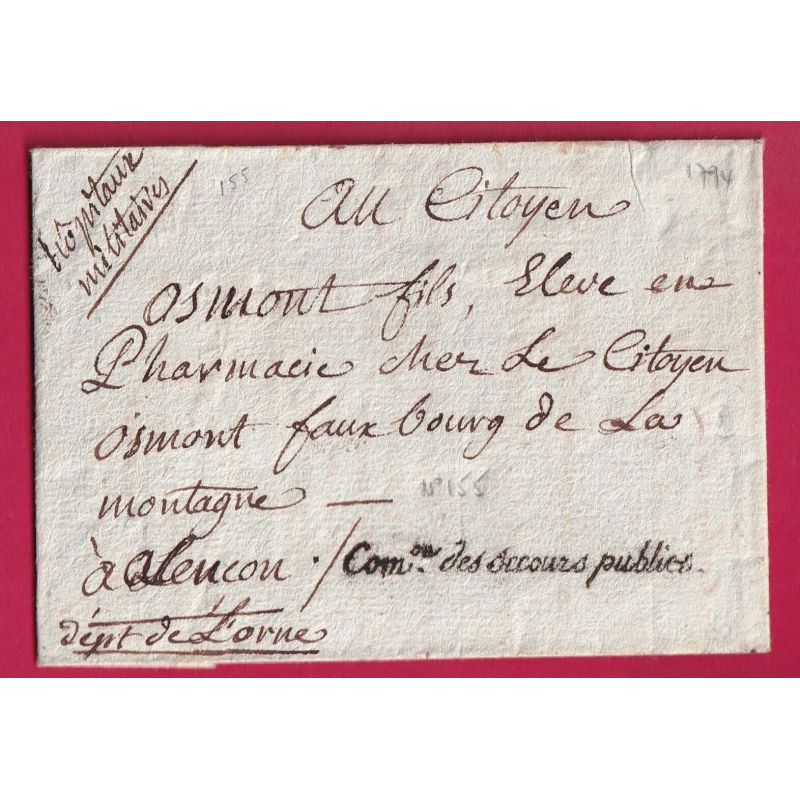 hôpitaux
militaires
155
1794
Au Citoyen
osmont fils, Eleve en
Pharmacie chez Le Citoyen
osmont faux bourg de La
montagne —
n° 155
à alencon . / Com.on des secours publics.
dépt de L'orne